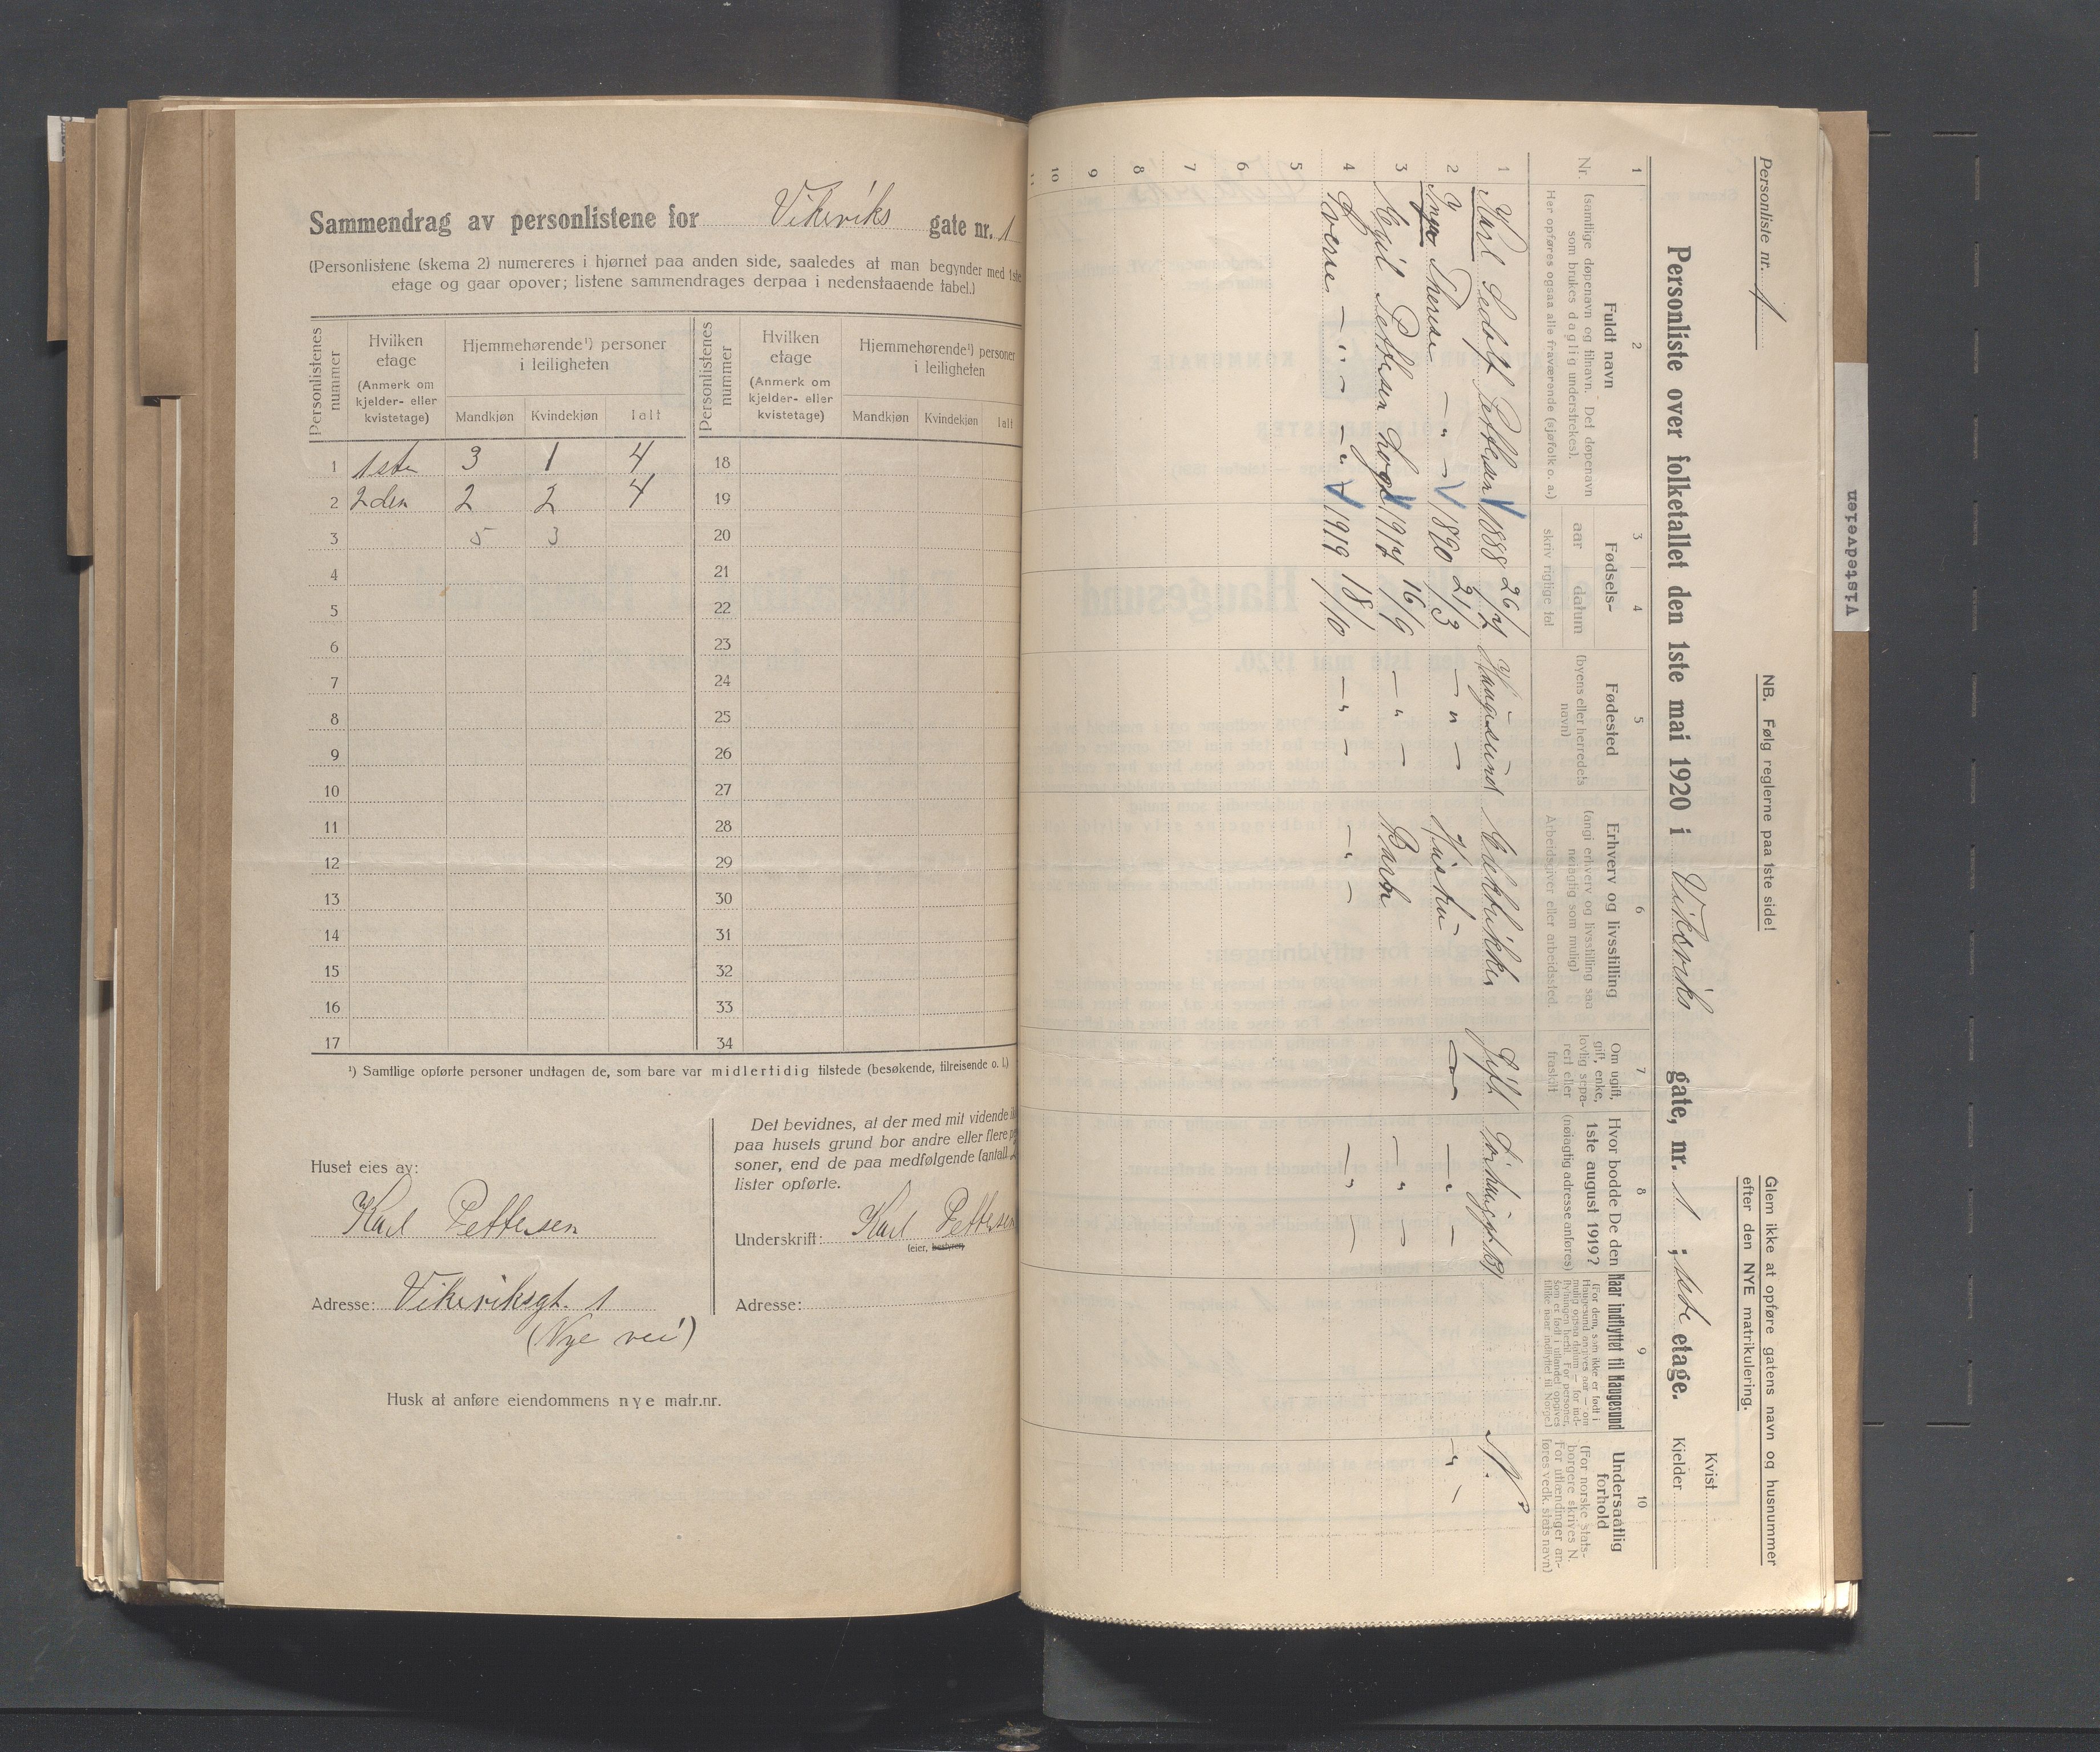 Sammendrag av personlistene for Vikeviks gate nr. 1
(Personlistene (skema 2) numereres i hjørnet paa anden side, saaledes at man begynder med 1ste
etage og gaar opover; listene sammendrages derpaa i nedenstaaende tabel.)
Personlistenes nummer
Hvilken etage (Anmerk om kjelder- eller kvistetage)
Hjemmehørende¹) personer i leiligheten
Mandkjøn Kvindekjøn Ialt
Personlistenes nummer
Hvilken etage (Anmerk om kjelder- eller kvistetage)
Hjemmehørende¹) personer i leiligheten
Mandkjøn Kvindekjøn Ialt
1 1ste 3 1 4 18
2 2den 2 2 4 19
3 5 3 20
4 21
5 22
6 23
7 24
8 25
9 26
10 27
11 28
12 29
13 30
14 31
15 32
16 33
17 34
¹) Samtlige opførte personer undtagen de, som bare var midlertidig tilstede (besøkende, tilreisende o. l.)
Huset eies av:
Karl Pettersen
Adresse: Vikeviksgt. 1
(Nye vei)
Det bevidnes, at der med mit vidende
paa husets grund bor andre eller flere
soner, end de paa medfølgende (antall
lister opførte.
Underskrift: Karl Pettersen
(eier, bestyrer)
Adresse:
Husk at anføre eiendommens nye matr.nr.
Personliste nr. 1
NB. Følg reglerne paa 1ste side!
Glem ikke at opføre gatens navn og husnummer
efter den NYE matrikulering.
Kvist
Personliste over folketallet den 1ste mai 1920 i Vikeviks gate, nr. 1 ; 1ste etage.
Kjelder
1 2 3 4 5 6 7 8 9 10
Nr.
Fuldt navn
(samtlige døpenavn og tilnavn. Det døpenavn
som brukes daglig understrekes).
Her opføres ogsaa alle fraværende (sjøfolk o. a.)
Fødsels-
aar datum
skriv rigtige tal
Fødested
(byens eller herredets
navn)
Erhverv og livsstilling
(angi erhverv og livsstilling saa
nøiagtig som mulig)
Arbeidsgiver eller arbeidssted.
Om ugift,
gift, enke,
lovlig sepa-
rert eller
fraskilt
Hvor bodde De den
1ste august 1919?
(nøiagtig adresse anføres)
Naar indflyttet til Haugesund
(For dem, som ikke er født i
Haugesund angives aar — om
mulig ogsaa datum — for ind-
flytningen hertil. For personer,
som er født i utlandet opgives
tillike naar indflyttet til Norge.)
Undersaatlig
forhold
(For norske stats-
borgere skrives N.
For utlændinger an-
føres vedk. stats navn)
1 Karl Pettersen 1888 26/7 Haugesund Gift N.
2 Inga Therese — " — 1890 21/3 — " — Hustru — " — — " — — " —
3 Pettersen 1917 16/9 — " — Barn — " —
4 Sverre — " — — " — 1919 18/10 — " — — " — — " —
5
6
7
8
9
10
11
Vistedveien